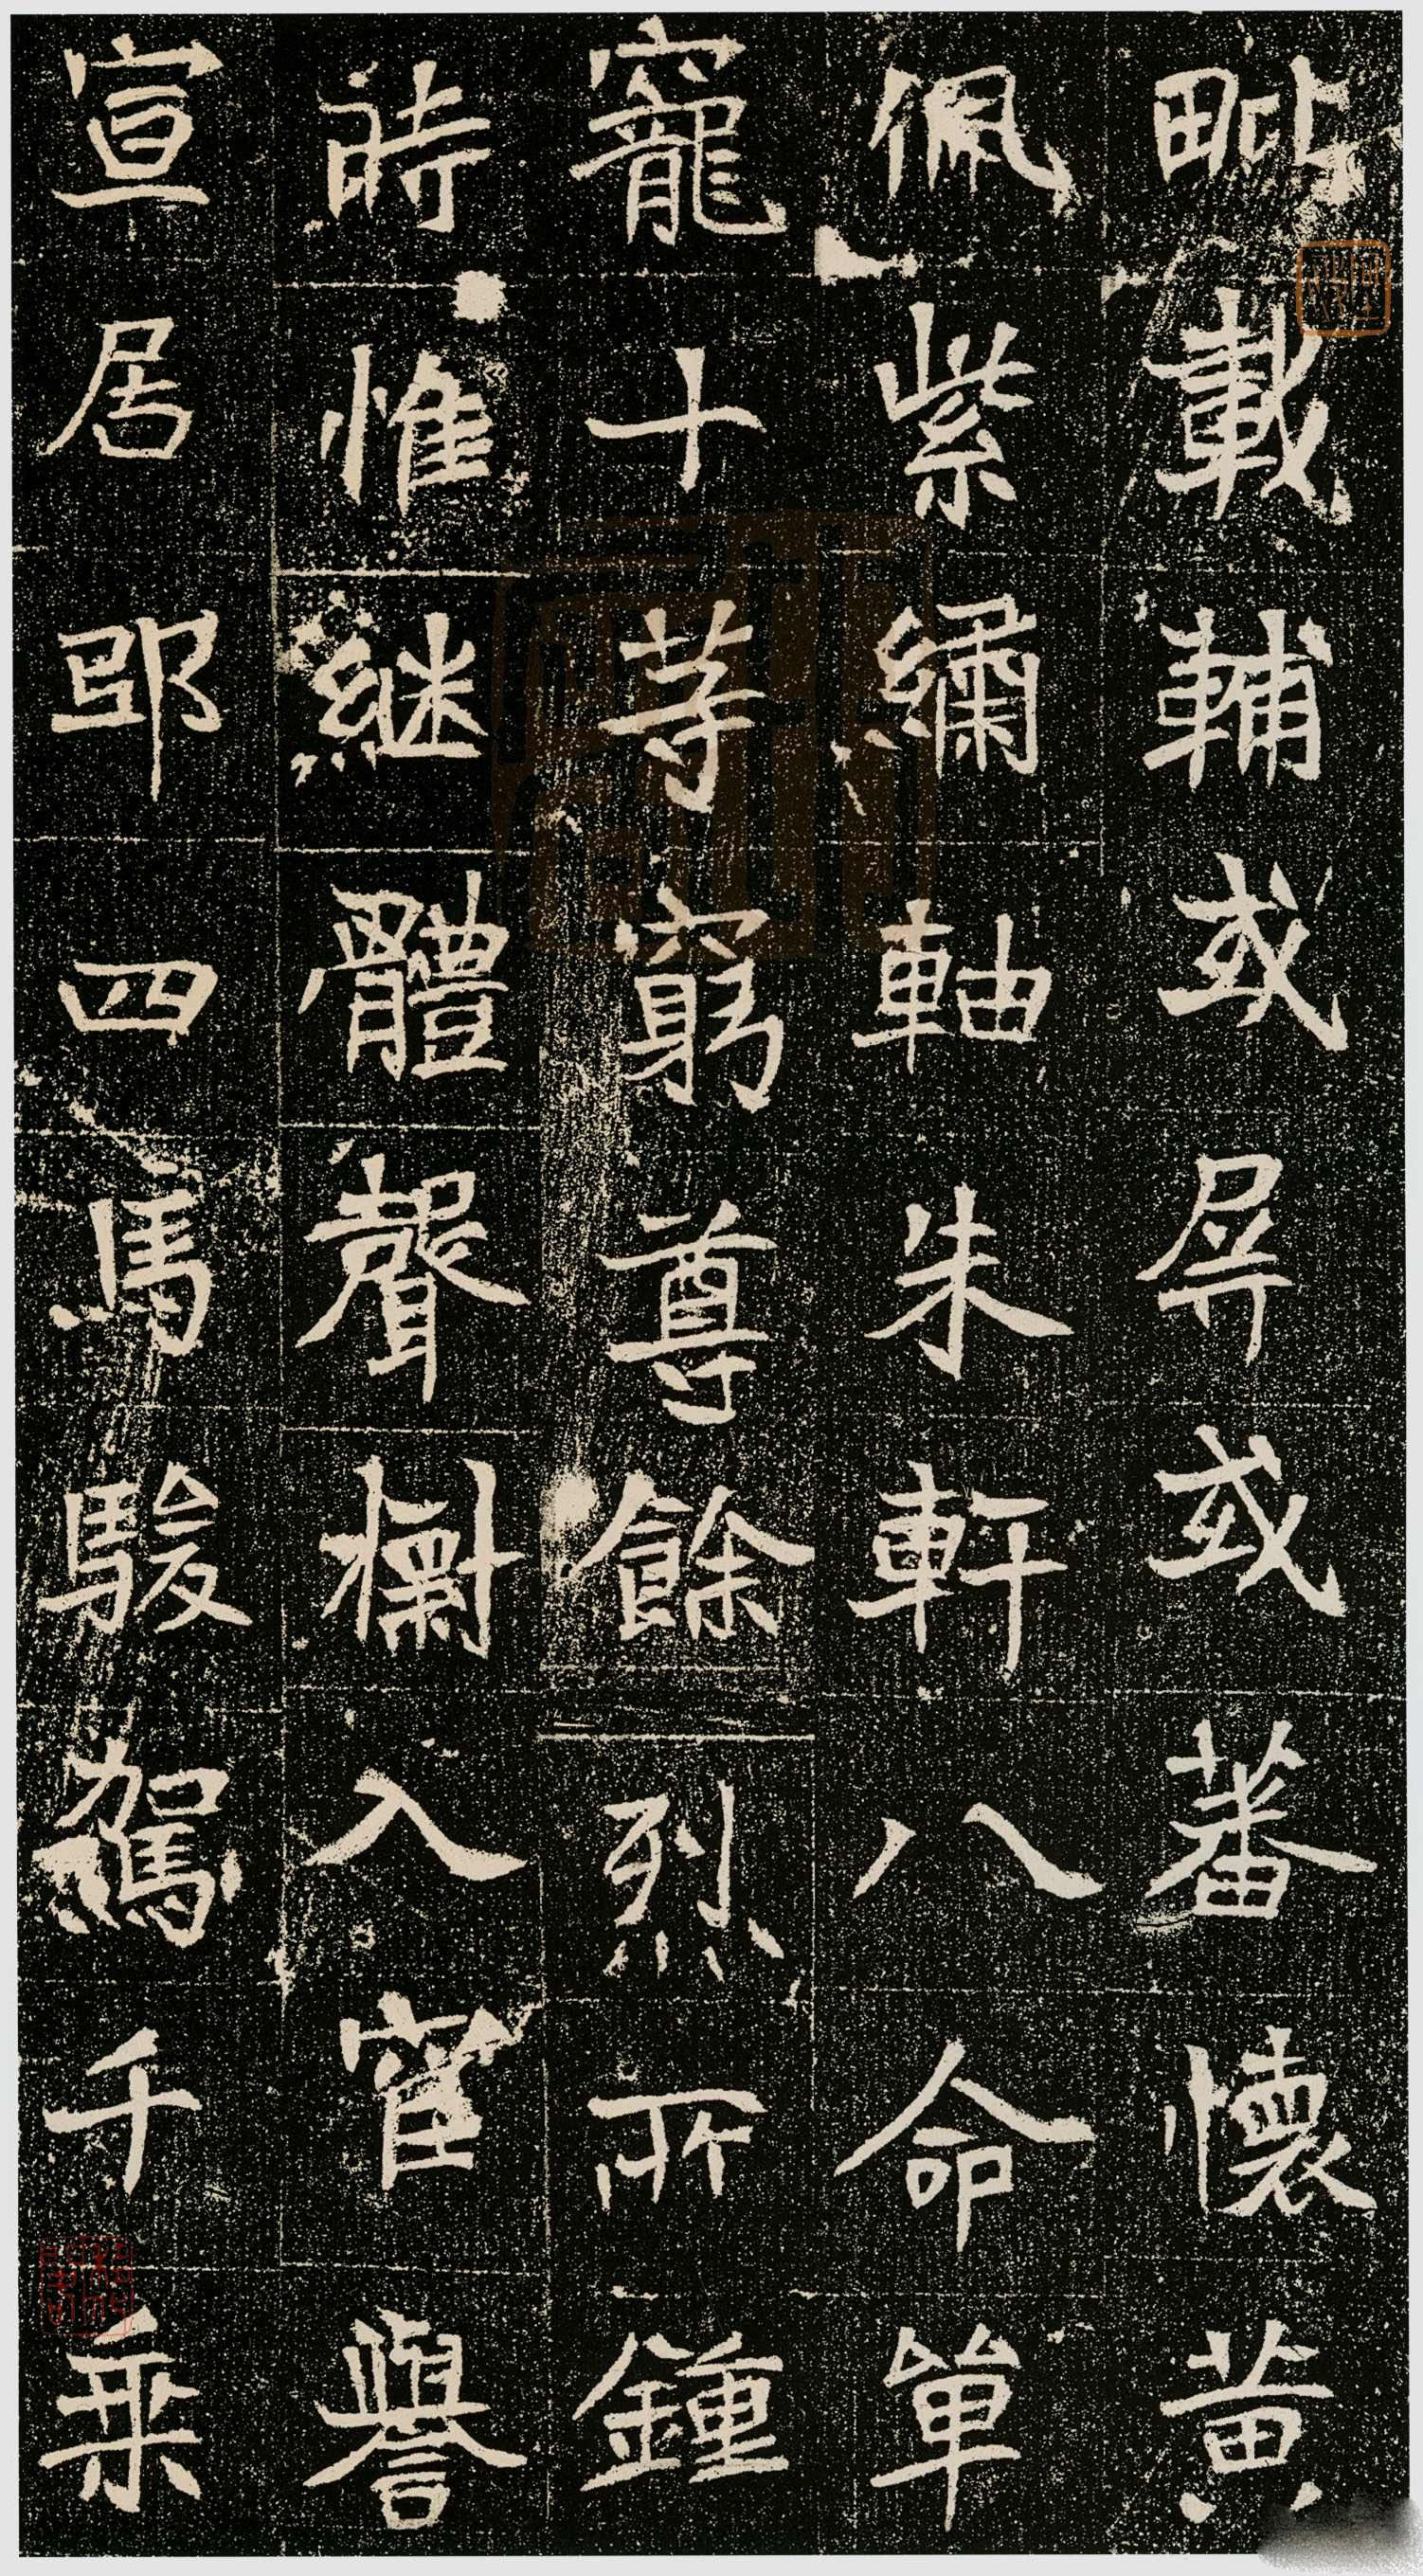 毗載輔或屏或蕃懷黄
佩紫繡軸朱軒八命單
寵十等窮尊餘烈所鍾
時惟継體聲入宦譽
宣居邸四馬駿駕千乘